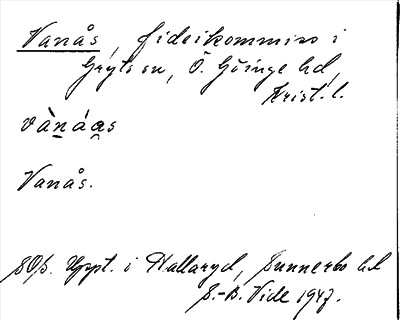 Vanås, fideikommiss i
Gryts sn, Ö. Göinge hd,
Krist. l.
vànáas
Vanås.
SOp. Uppt. i Hallaryd, Sunnerbo hd
S.-B. Vide 1947.